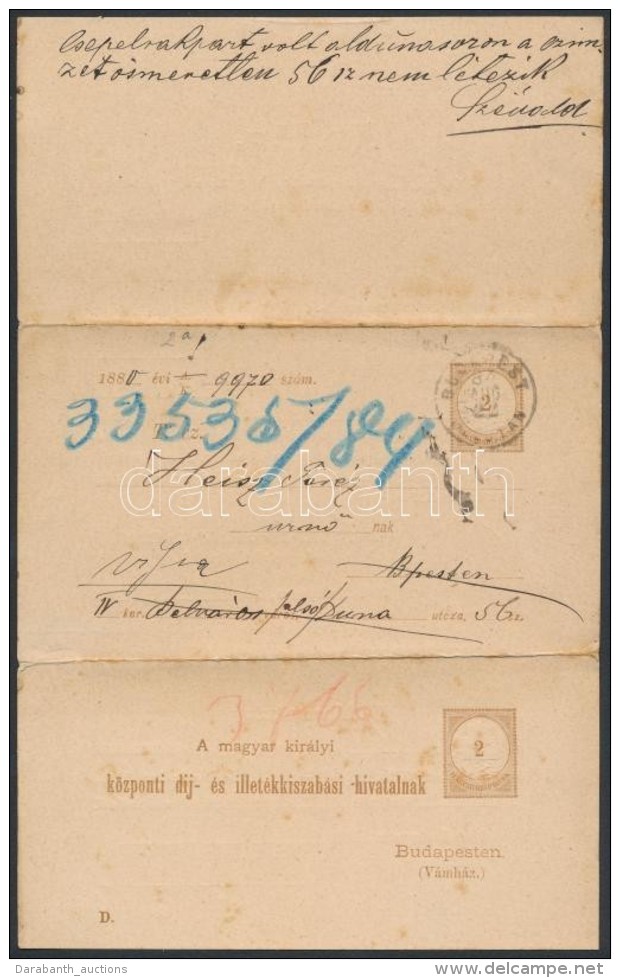 Csepelrakpart volt aldunasoron a czim-
zet ösmeretlen 56 sz nem létezik
2a!
1880 évi 9970 szám.
33535/84
T. cz.
Heisz Teréz
urnő nak
Bpesten
IV ker. Belváros alsó Duna utcza, 56 sz.
BUDAPEST
2
darabanth
A magyar királyi
központi díj- és illetékkiszabási-hivatalnak
2
Budapesten.
(Vámház.)
D.
Darabanth_auctions
delcampe.net